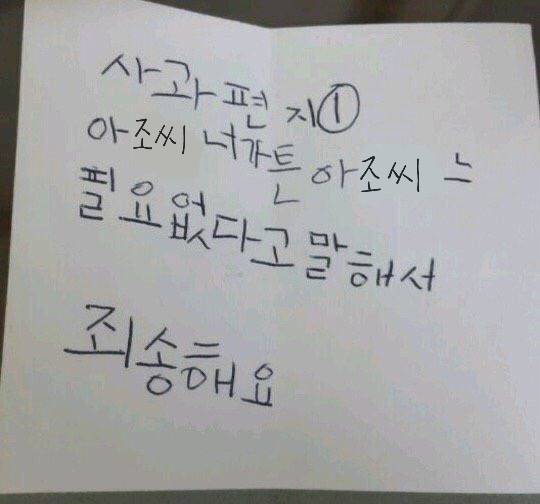 사과편지①
아조씨 너가튼 아조씨 는
필요없다고 말해서
죄송해요